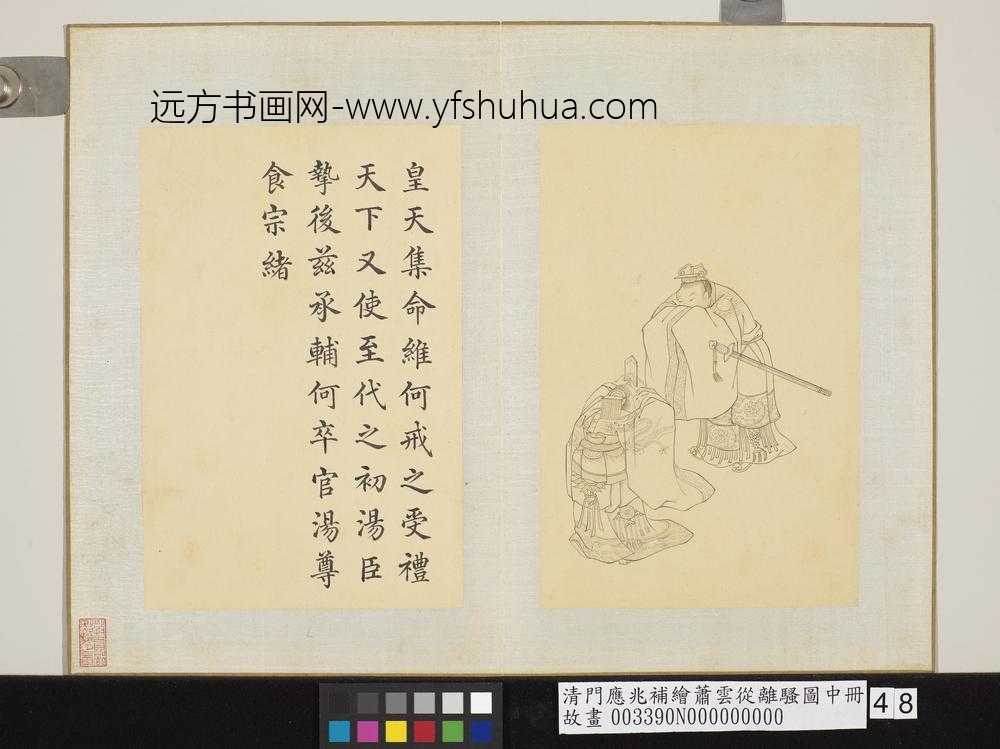 远方书画网-www.yfshuhua.com
皇天集命維何戒之受禮
天下又使至代之初湯臣
摯後兹承輔何卒官湯尊
食宗緒
清門應兆補繪蕭雲從離騷圖中冊
故畫 003390N000000000
48